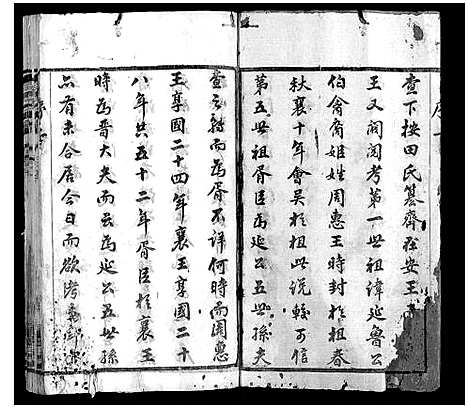 壹下按田氏纂齊在安王
王又閱閱考第一世祖諱延魯公
伯禽裔姬姓周惠王時封於祖春
秋襄十年會吳於柤此說較可信
第五世祖胥臣為延公五世孫夫
壹之轉而為胥不詳何時而周惠
王享國二十四年襄王享國二十
八年共五十二年胥臣於襄王
時為晉大夫而云為延公五世孫
亦有未合居今日而欲考